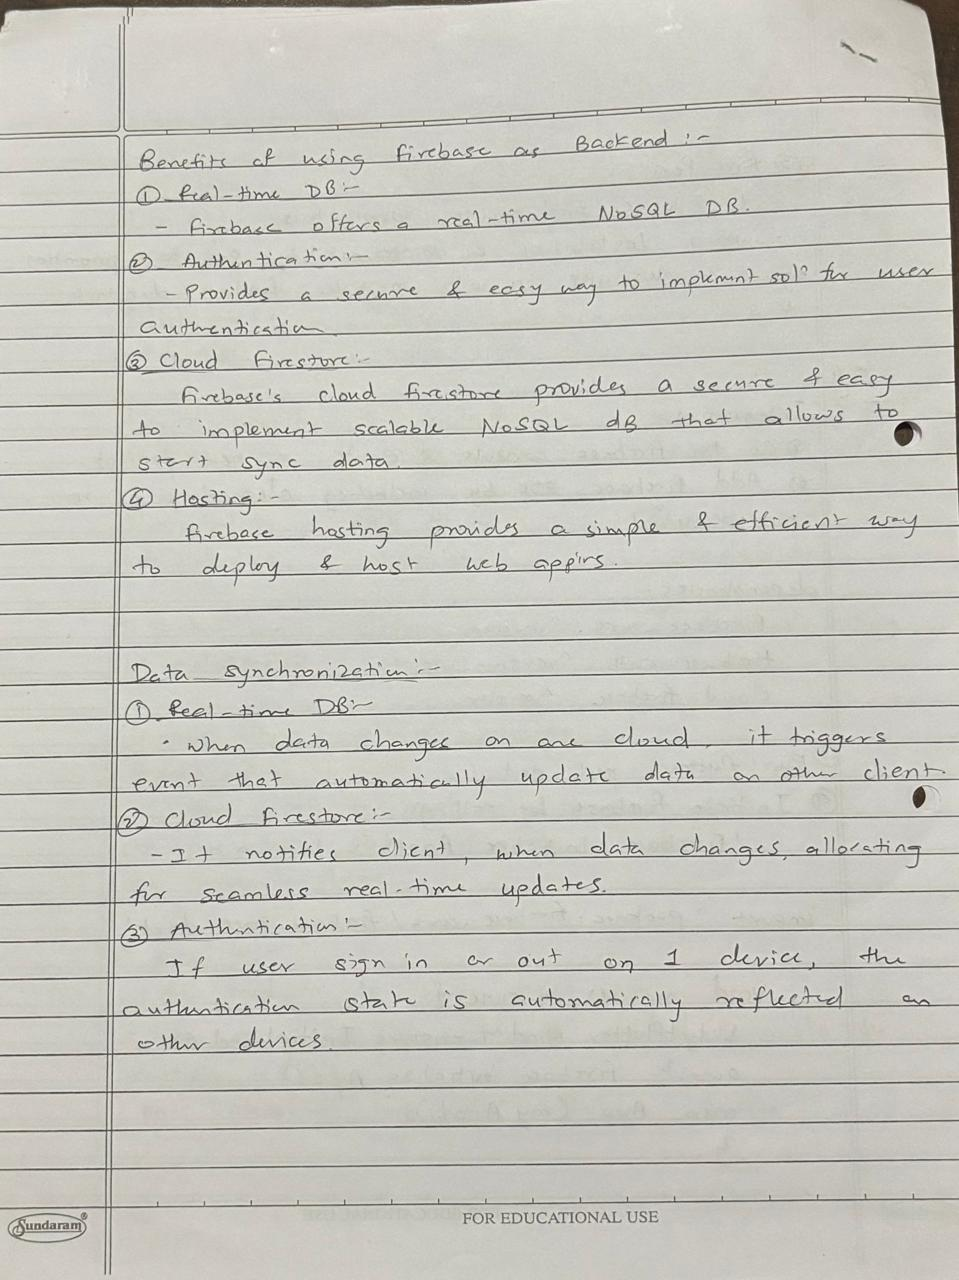 Benefits of using firebase as Backend :-
① Real-time DB:-
- firebase offers a real-time NoSQL DB.
② Authentication:-
- Provides a secure & easy way to implement solⁿ for user
authentication
③ Cloud Firestore:-
firebase's cloud firestore provides a secure & easy
to implement scalable NoSQL dB that allows to
start sync data.
④ Hosting:-
firebase hosting provides a simple & efficient way
to deploy & host web app'ns.
Data synchronization:-
① Real-time DB:-
· when data changes on one cloud, it triggers
event that automatically update data on other client.
② Cloud firestore:-
- It notifies client, when data changes, allocating
for seamless real-time updates.
③ Authentication:-
If user sign in or out on 1 device, the
authentication state is automatically reflected on
other devices.
Sundaram®
FOR EDUCATIONAL USE